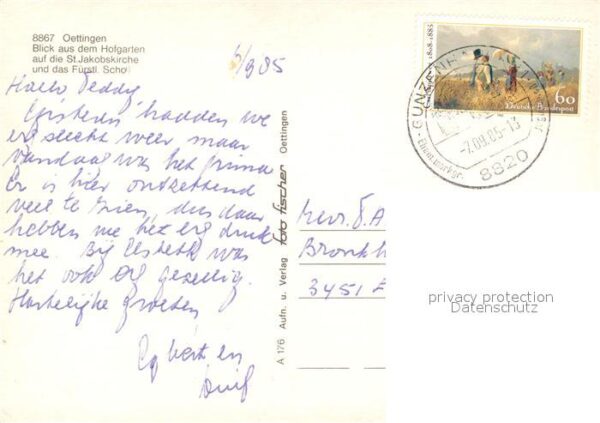 8867 Oettingen
Blick aus dem Hofgarten
auf die St.Jakobskirche
und das Fürstl. Schloß
6/9 85
Hallo Teddy,
Gisteren hadden we
erg slecht weer maar
vandaag was het prima
Er is hier ontzettend
veel te zien, dus daar
hebben we het erg druk
mee. Bij Elsbeth was
het ook erg gezellig.
Hartelijke groeten
Egbert en
A 176 Aufn. u. Verlag foto fischer Oettingen
1808-1885
Deutsche Bundespost
60
GUNZENHAUSEN
-7.09.85-13
8820
Mevr.
Bronkh
3451
privacy protection
Datenschutz